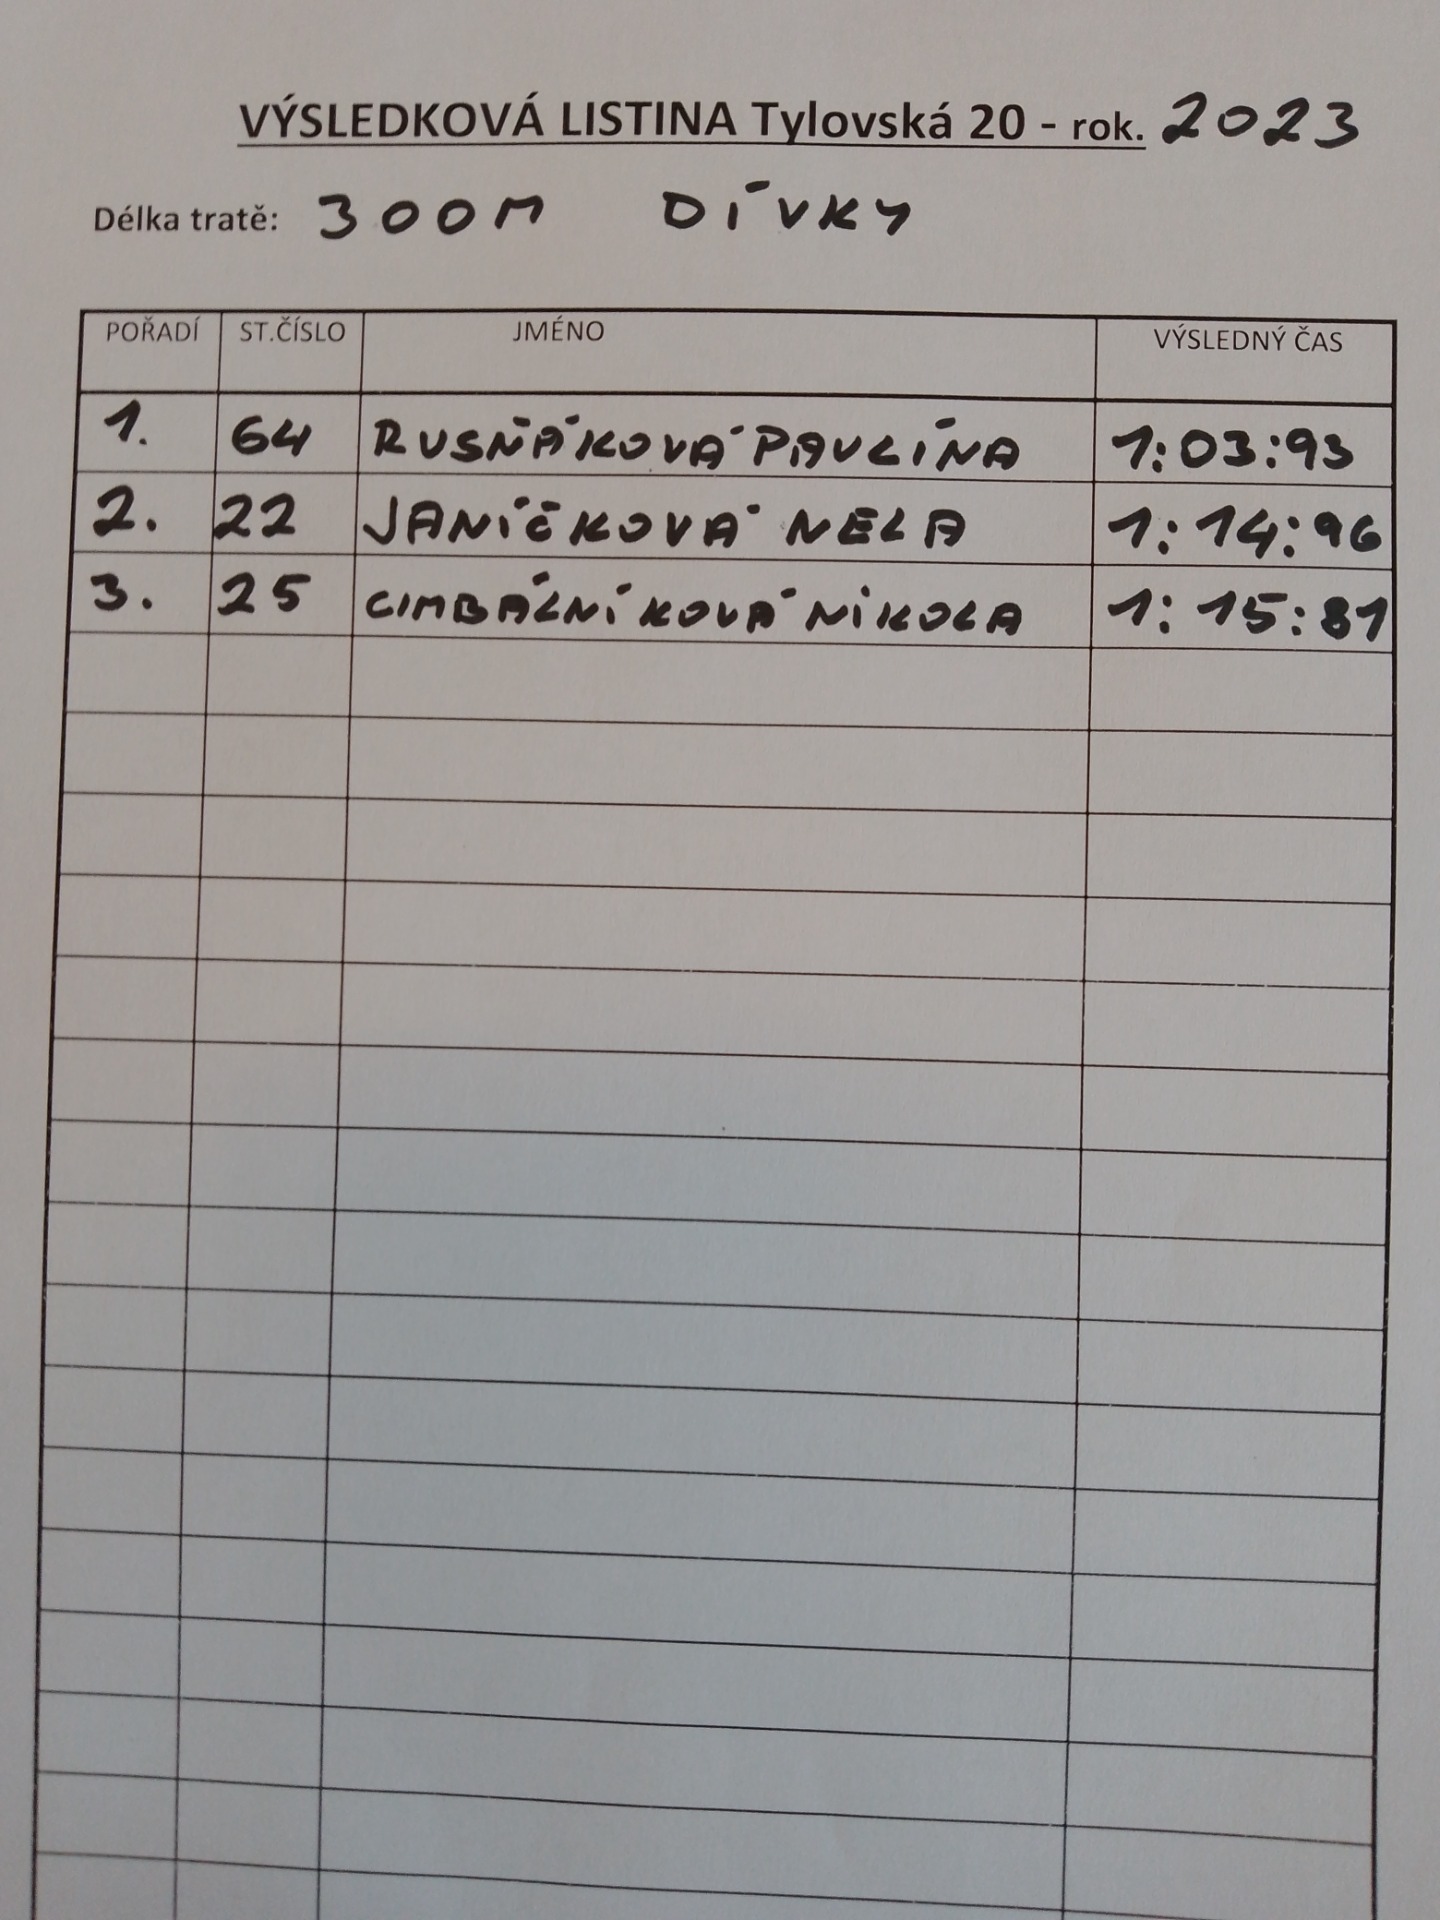 VÝSLEDKOVÁ LISTINA Tylovská 20 - rok. 2023
Délka tratě: 300M DÍVKY
POŘADÍ ST.ČÍSLO JMÉNO VÝSLEDNÝ ČAS
1. 64 RUSŇÁKOVÁ PAVLÍNA 1:03:93
2. 22 JANÍČKOVÁ NELA 1:14:96
3. 25 CIMBÁLNÍKOVÁ NIKOLA 1:15:81